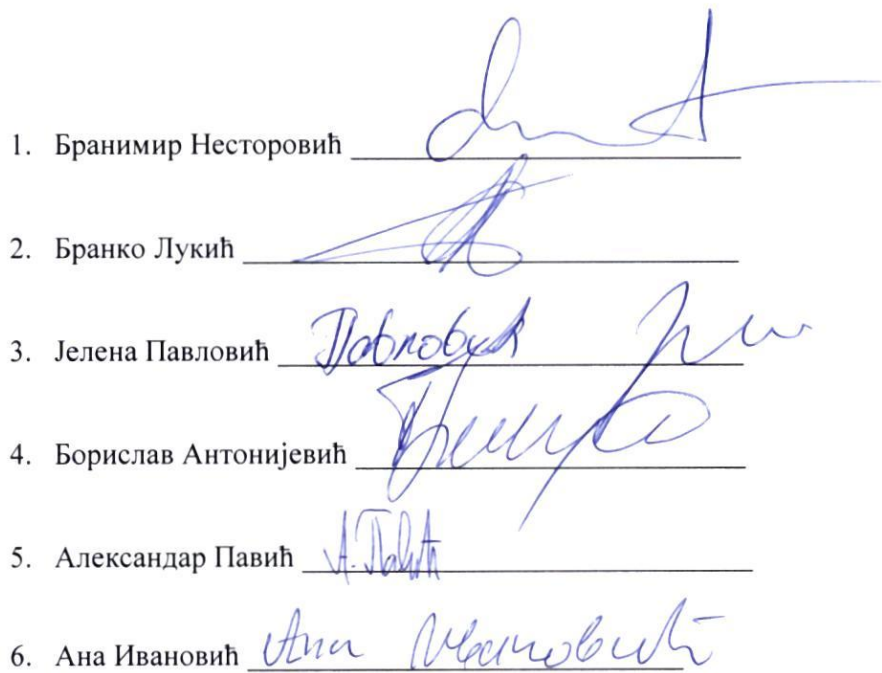 1. Бранимир Несторовић
2. Бранко Лукић
3. Јелена Павловић Павловић
4. Борислав Антонијевић
5. Александар Павић А. Павић
6. Ана Ивановић Ана Ивановић